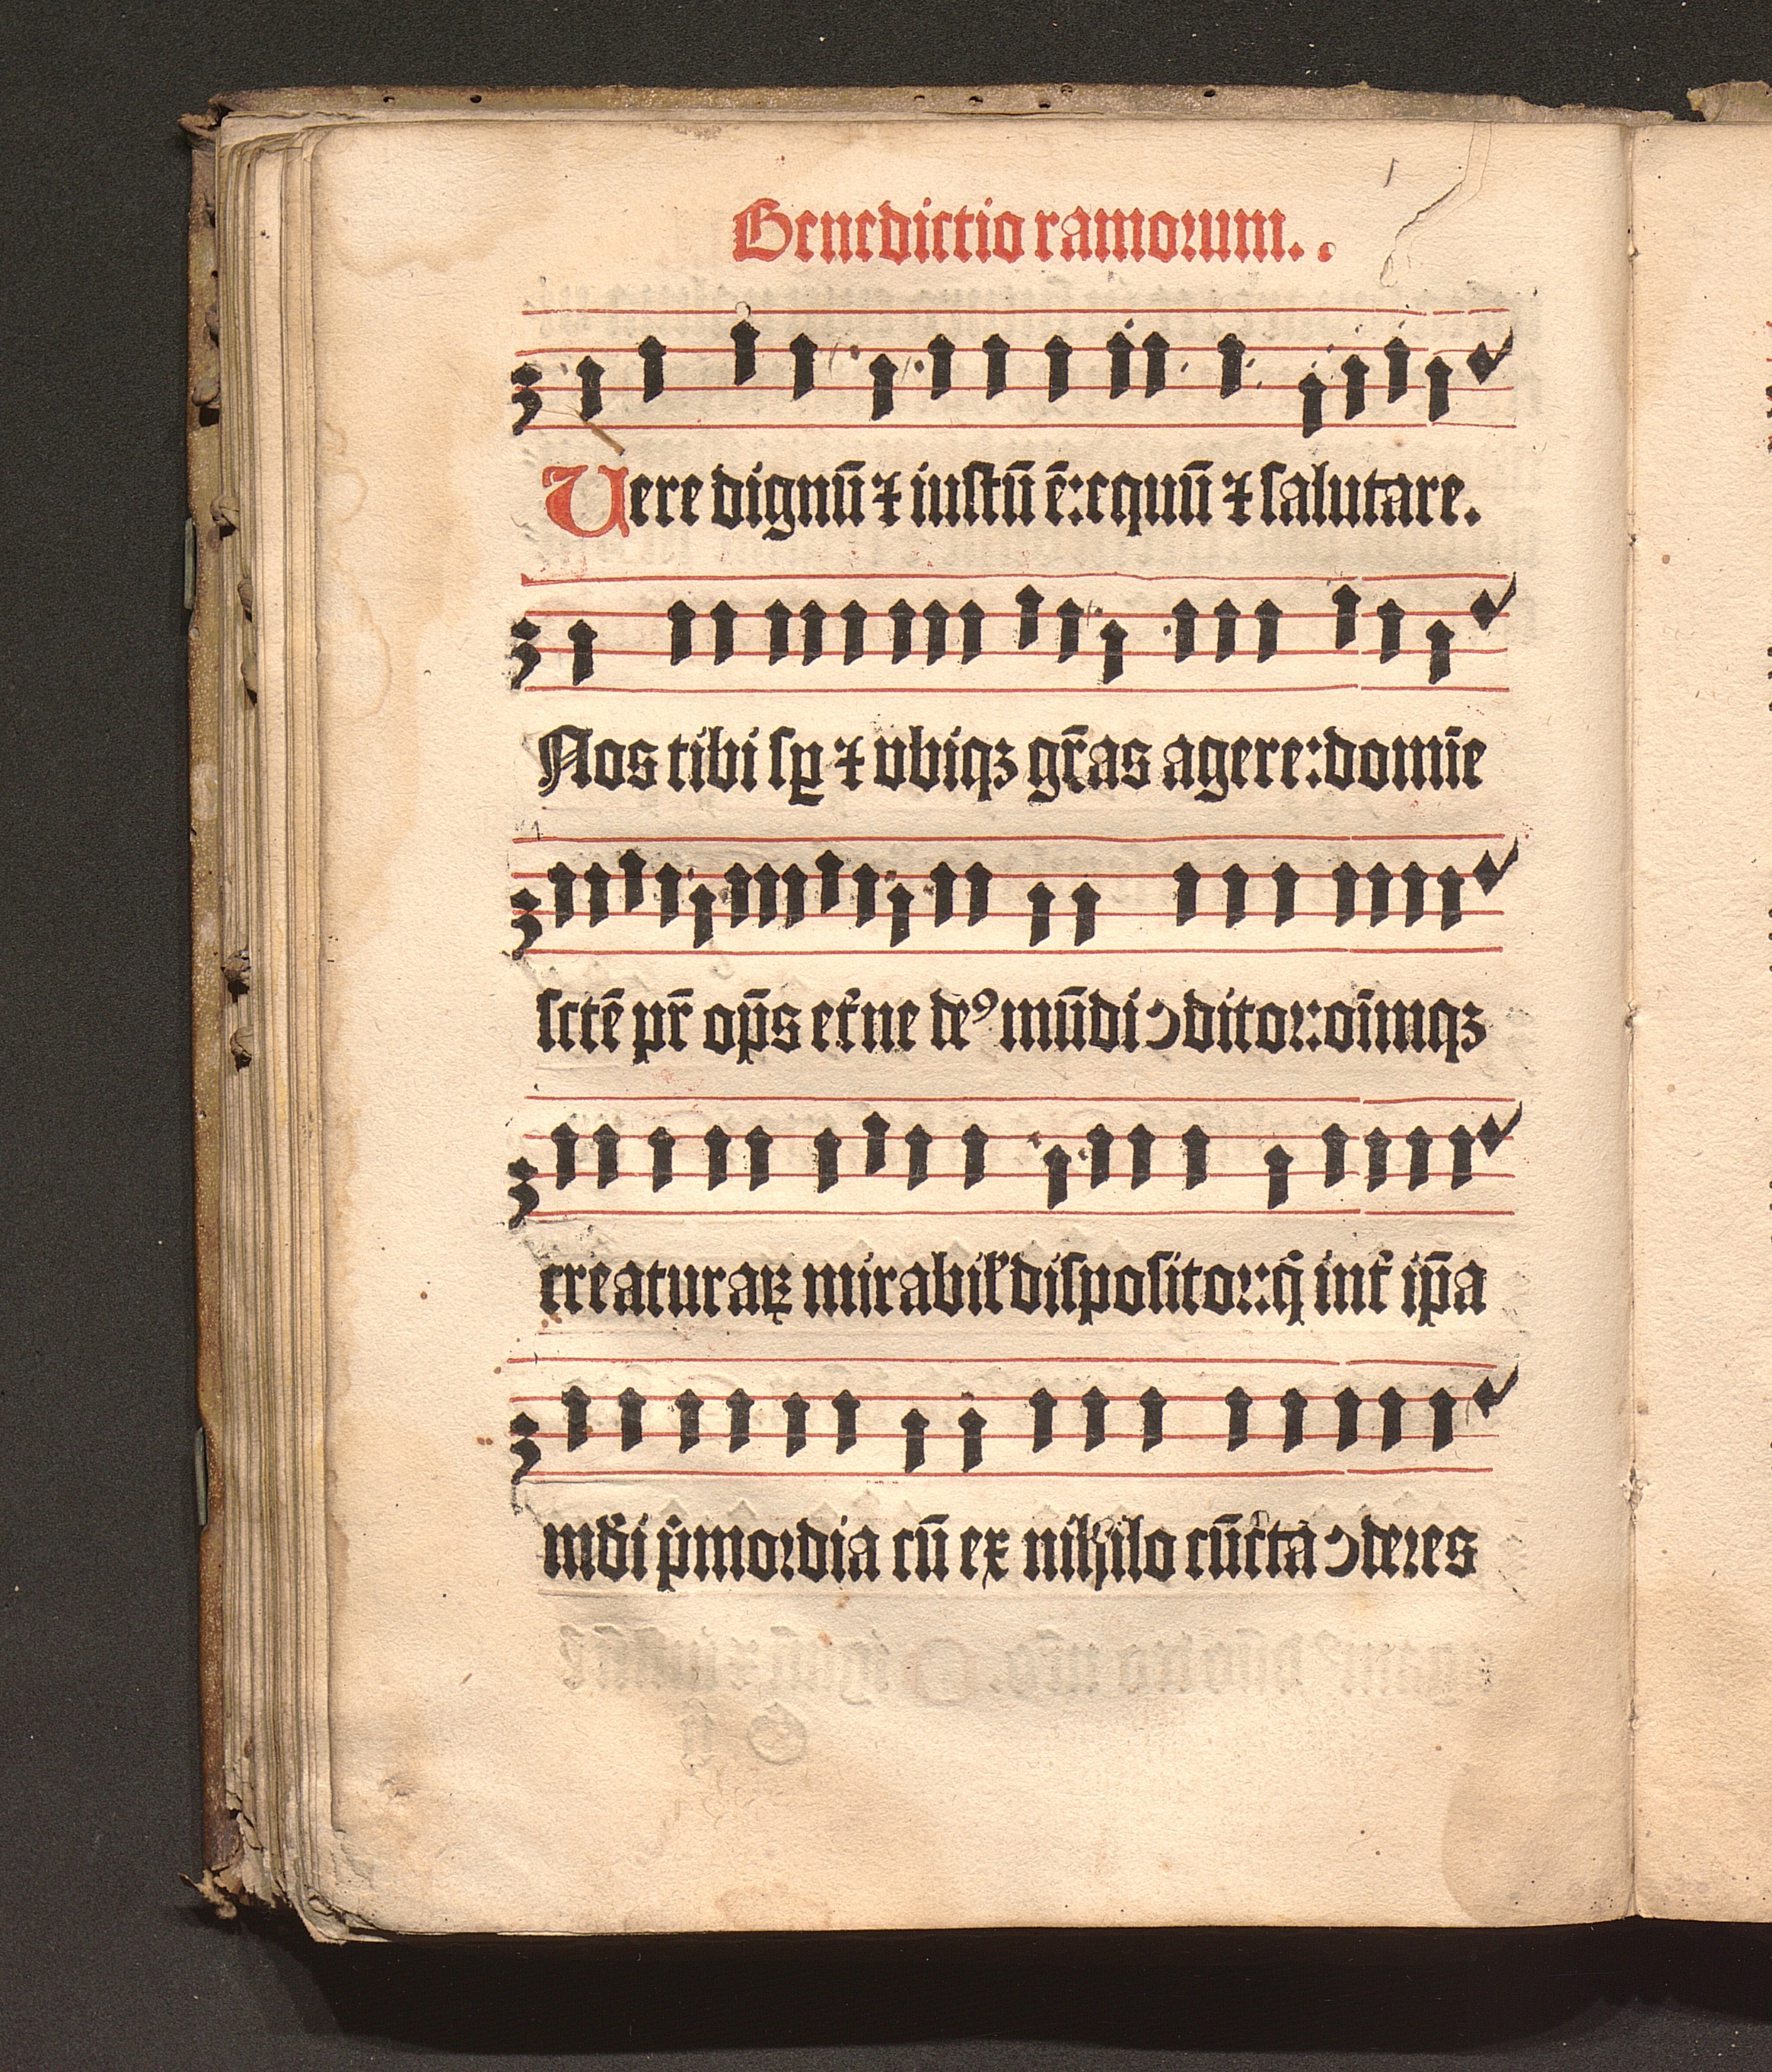 Benedictio ramorum. .
Uere dignū ⁊ iustū ē: equū ⁊ salutare.
Nos tibi sꝑ ⁊ vbiqꝫ gr̄as agere: domīe
sctē pr̄ op̄s et̄ne deꝰ mūdi ↄditor: oīmqꝫ
creaturaꝝ mirabil̕ dispositor: q̄ int̄ ip̄a
mūdi p̄mordia cū ex nihilo cūcta ↄderes